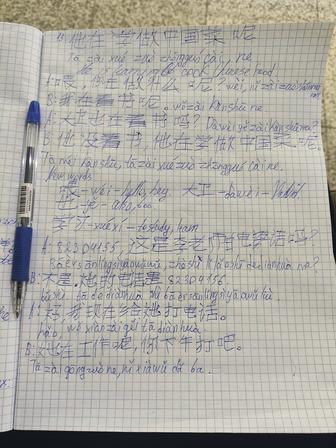 B: 他在学做中国菜呢
Tā zài xué zuò zhōngguó cài, ne
he learning cook Chinese food
A: 喂, 你在做什么呢?
B: 我在看书呢。 wǒ zài kànshū ne
A: 大卫也在看书吗? Dàwèi yě zài kànshū ma?
B: 他没看书, 他在学做中国菜呢。
Tā méi kànshū, tā zài xué zuò zhōngguó cài ne.
New words
喂 - wèi - hello, hey, 大卫 - dàwèi - David
也 - yě - also, too
学习 - xuéxí - to study, learn
A: 82304156, 这是李老师的电话吗?
Bā èr sān líng sì yāo wǔ liù, zhè shì lǐ lǎoshī de diànhuà ma?
B: 不是, 她的电话是 82304156
A: 好, 我现在给她打电话。
hǎo, wǒ xiànzài gěi tā dǎ diànhuà
B: 她在工作呢, 你下午打吧。
Tā zài gōngzuò ne, nǐ xiàwǔ dǎ ba.